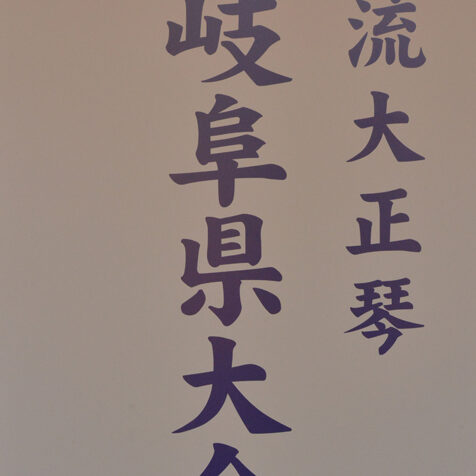 流大正琴
岐阜県大会